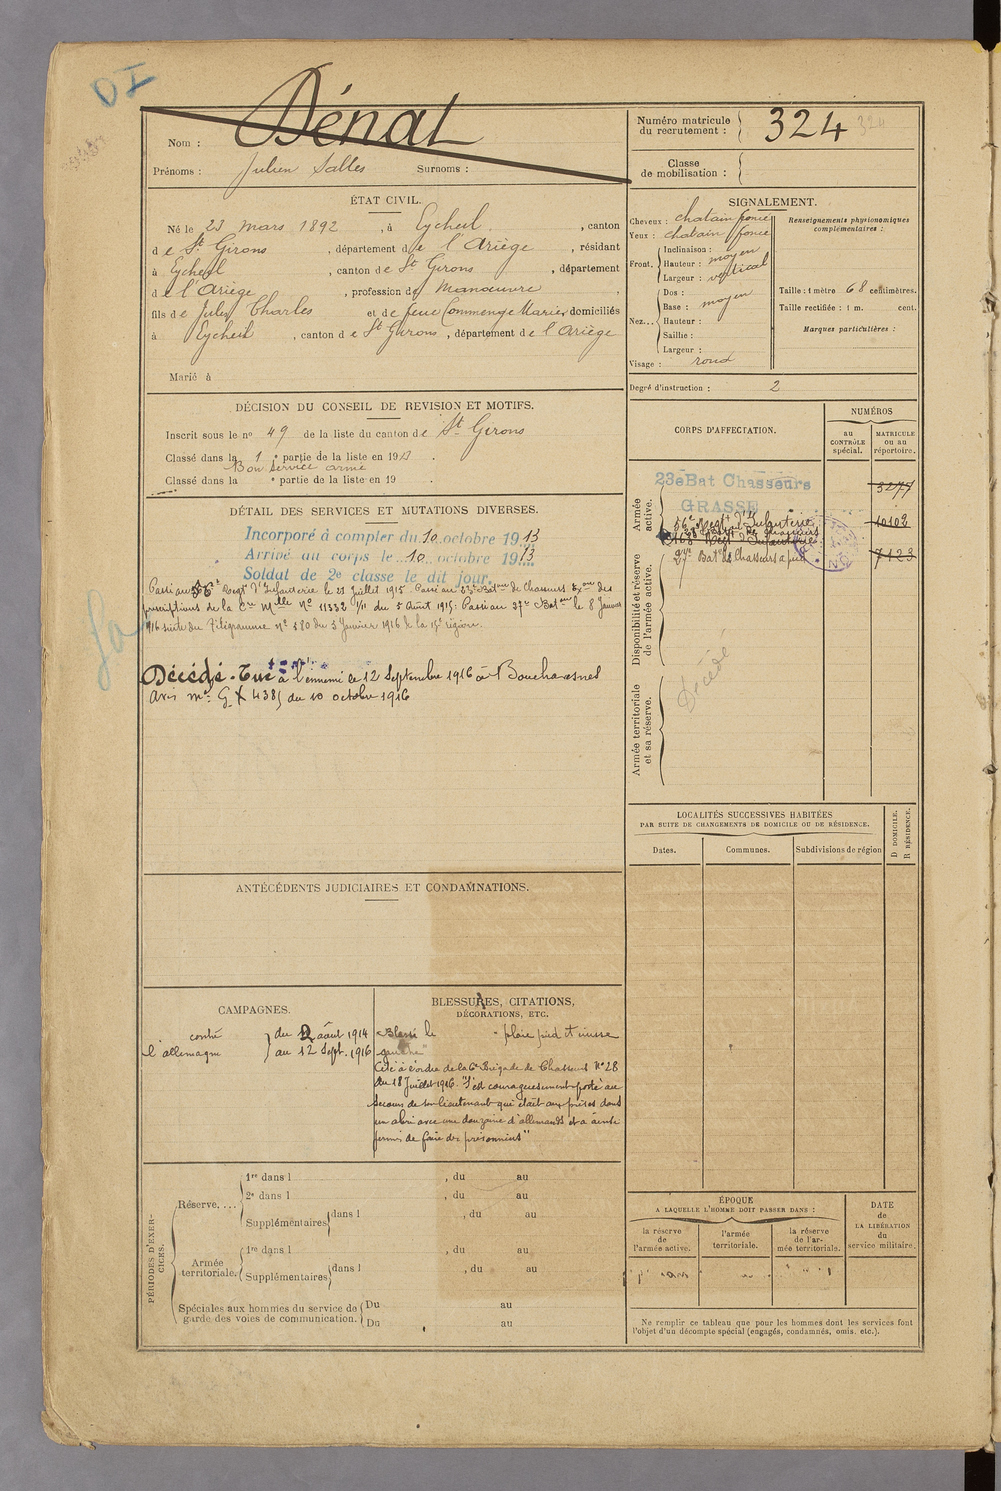 DI
Dénat
Nom :
Prénoms : Julien Salles Surnoms :
Numéro matricule du recrutement : 324
Classe de mobilisation :
ÉTAT CIVIL.
Né le 23 mars 1892, à Eycheil, canton
de St Girons, département de l'Ariège, résidant
à Eycheil, canton de St Girons, département
de l'Ariège, profession de Manœuvre,
fils de Jules Charles et de feue Commenge Marie, domiciliés
à Eycheil, canton de St Girons, département de l'Ariège
Marié à
SIGNALEMENT.
Cheveux : chatain foncé
Yeux : chatain foncé
Front. Inclinaison :
Hauteur : moyen
Largeur : vertical
Nez... Dos :
Base : moyen
Hauteur :
Saillie :
Largeur :
Visage : rond
Renseignements physionomiques complémentaires :
Taille : 1 mètre 68 centimètres.
Taille rectifiée : 1 m. cent.
Marques particulières :
Degré d'instruction : 2
DÉCISION DU CONSEIL DE REVISION ET MOTIFS.
Inscrit sous le no 49 de la liste du canton de St Girons
Classé dans la 1 e partie de la liste en 1913.
Bon service armé
Classé dans la e partie de la liste en 19 .
DÉTAIL DES SERVICES ET MUTATIONS DIVERSES.
Incorporé à compter du 10 octobre 1913
Arrivé au corps le 10 octobre 1913
Soldat de 2e classe le dit jour.
Passé au Regt d'Infanterie le 21 Juillet 1915 Passé au 23e Baton de Chasseurs Exon des
prescriptions de la Cre Mlle No 11332 1/11 du 5 Aout 1915. Passé au 27e Baton le 8 Janvier
1916 suite du Télégramme No 580 du 3 Janvier 1916 de la 15e région.
Décédé. Tué à l'ennemi le 12 Septembre 1916 à Bouchavesnes
avis du 10 octobre 1916
CORPS D'AFFECTATION.
NUMÉROS
au CONTRÔLE spécial.
MATRICULE ou au répertoire.
Armée active.
23e Bat Chasseurs
GRASSE
3277
Regt d'Infanterie
10102
27e Bat de Chasseurs à pied
7123
Disponibilité et réserve de l'armée active.
Décédé
Armée territoriale et sa réserve.
LOCALITÉS SUCCESSIVES HABITÉES
PAR SUITE DE CHANGEMENTS DE DOMICILE OU DE RÉSIDENCE.
Dates.
Communes.
Subdivisions de région
D DOMICILE.
R RÉSIDENCE.
ANTÉCÉDENTS JUDICIAIRES ET CONDAMNATIONS.
CAMPAGNES.
contre l'allemagne
du 2 août 1914
au 12 Sept. 1916
BLESSURES, CITATIONS,
DÉCORATIONS, ETC.
Blessé le plaie pied
gauche"
Cité à l'ordre de la 6e Brigade de Chasseurs No 28
du 18 Juillet 1916. "S'est courageusement porté au
secours de son lieutenant qui était aux prises dans
un abri avec une douzaine d'allemands et a ainsi
permis de faire des prisonniers"
PÉRIODES D'EXERCICES.
Réserve....
1re dans l , du au
2e dans l , du au
Supplémentaires dans l , du au
Armée territoriale.
1re dans l , du au
Supplémentaires dans l , du au
Spéciales aux hommes du service de garde des voies de communication.
Du au
Du au
ÉPOQUE
A LAQUELLE L'HOMME DOIT PASSER DANS :
la réserve de l'armée active.
l'armée territoriale.
la réserve de l'armée territoriale.
DATE de LA LIBÉRATION du service militaire.
Ne remplir ce tableau que pour les hommes dont les services font
l'objet d'un décompte spécial (engagés, condamnés, omis, etc.).